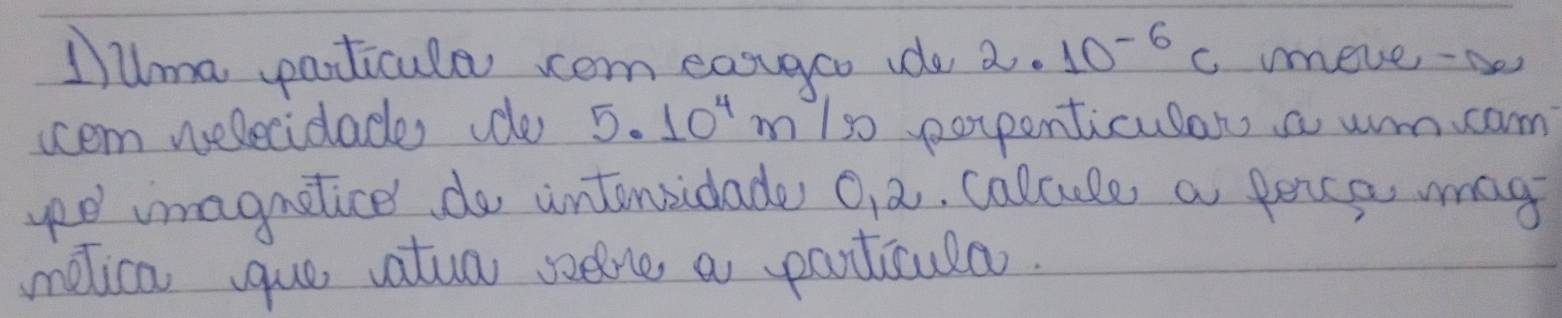 1) Uma partícula com carga de 2.10⁻⁶ C move-se
com velocidade de 5.10⁴ m/s perpenticular a um cam-
po magnético de intensidade 0,2. Calcule a força mag-
nética que atua sobre a partícula.